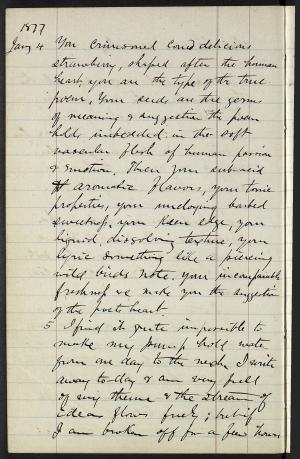 1877
Jany 4 You crimsoned coned delicious
strawberry, shaped after the human
heart, you are the type of the true
poem, Your seeds are the germs
of meaning & suggestion the poem
holds imbedded in the soft
vascular flesh of human passion
& emotion. Then your subacid
aromatic flavors, your tonic
properties, your uncloying barbed
sweetness, your keen edge, your
liquid, dissolving texture, your
lyric something like a piercing
wild birds note, your incomparable
freshness we make you the suggestion
of the poets heart.
5 I find it quite impossible to
make my pump hold water
from one day to the next. I write
away to-day & am very full
of my theme & the stream of
ideas flows freely; but if
I am broken off for a few hours